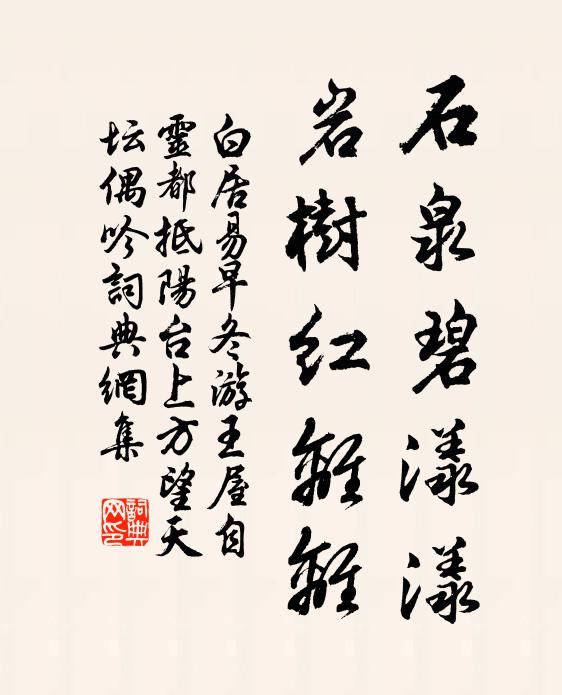 石泉碧漾漾
岩樹紅離離
白居易早冬游王屋自
靈都抵陽台上方望天
坛偶吟詞典網集
詞典
网印